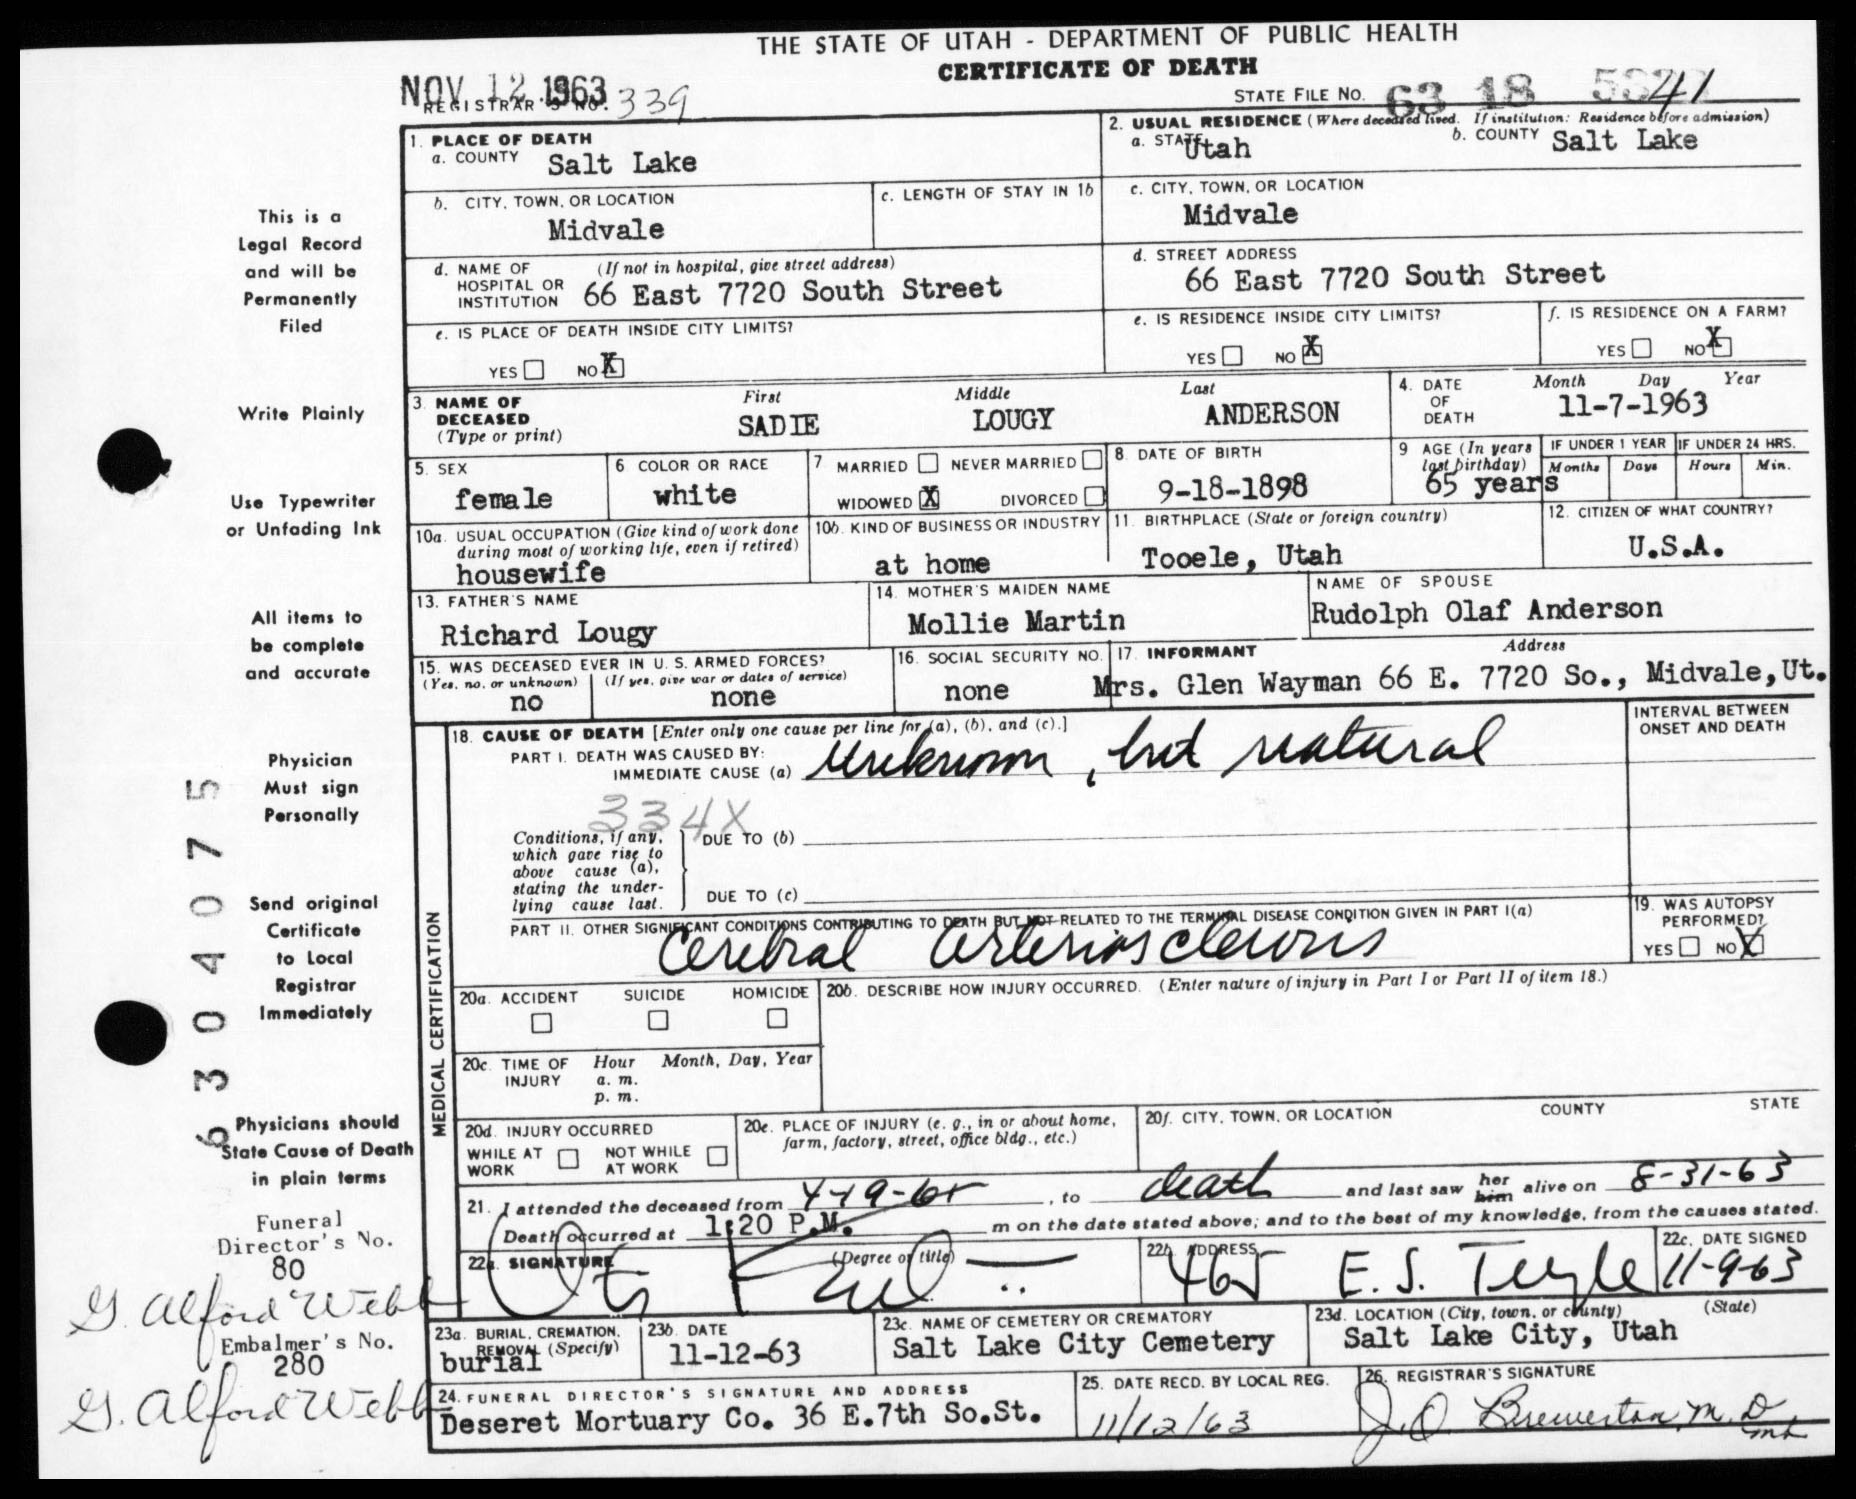 THE STATE OF UTAH - DEPARTMENT OF PUBLIC HEALTH
CERTIFICATE OF DEATH
NOV 12 1963
REGISTRAR'S NO. 339
STATE FILE NO. 63 18 41
1. PLACE OF DEATH
a. COUNTY Salt Lake
2. USUAL RESIDENCE (Where deceased lived. If institution: Residence before admission)
a. STATE Utah b. COUNTY Salt Lake
b. CITY, TOWN, OR LOCATION
Midvale
c. LENGTH OF STAY IN 1b
c. CITY, TOWN, OR LOCATION
Midvale
d. NAME OF HOSPITAL OR INSTITUTION (If not in hospital, give street address)
66 East 7720 South Street
d. STREET ADDRESS
66 East 7720 South Street
e. IS PLACE OF DEATH INSIDE CITY LIMITS?
YES NO X
e. IS RESIDENCE INSIDE CITY LIMITS?
YES NO X
f. IS RESIDENCE ON A FARM?
YES NO X
3. NAME OF DECEASED (Type or print)
First Middle Last
SADIE LOUGY ANDERSON
4. DATE OF DEATH Month Day Year
11-7-1963
5. SEX
female
6 COLOR OR RACE
white
7 MARRIED NEVER MARRIED
WIDOWED X DIVORCED
8. DATE OF BIRTH
9-18-1898
9 AGE (In years last birthday)
65 years
IF UNDER 1 YEAR IF UNDER 24 HRS.
Months Days Hours Min.
10a. USUAL OCCUPATION (Give kind of work done during most of working life, even if retired)
housewife
10b. KIND OF BUSINESS OR INDUSTRY
at home
11. BIRTHPLACE (State or foreign country)
Tooele, Utah
12. CITIZEN OF WHAT COUNTRY?
U.S.A.
13. FATHER'S NAME
Richard Lougy
14. MOTHER'S MAIDEN NAME
Mollie Martin
NAME OF SPOUSE
Rudolph Olaf Anderson
15. WAS DECEASED EVER IN U. S. ARMED FORCES?
(Yes, no, or unknown) (If yes, give war or dates of service)
no none
16. SOCIAL SECURITY NO.
none
17. INFORMANT Address
Mrs. Glen Wayman 66 E. 7720 So., Midvale, Ut.
MEDICAL CERTIFICATION
18. CAUSE OF DEATH [Enter only one cause per line for (a), (b), and (c).]
INTERVAL BETWEEN ONSET AND DEATH
PART I. DEATH WAS CAUSED BY:
IMMEDIATE CAUSE (a) Unknown, but natural
334X
Conditions, if any, which gave rise to above cause (a), stating the underlying cause last.
DUE TO (b)
DUE TO (c)
PART II. OTHER SIGNIFICANT CONDITIONS CONTRIBUTING TO DEATH BUT NOT RELATED TO THE TERMINAL DISEASE CONDITION GIVEN IN PART I(a)
Cerebral arteriosclerosis
19. WAS AUTOPSY PERFORMED?
YES NO X
20a. ACCIDENT SUICIDE HOMICIDE
20b. DESCRIBE HOW INJURY OCCURRED. (Enter nature of injury in Part I or Part II of item 18.)
20c. TIME OF INJURY Hour Month, Day, Year
a. m.
p. m.
20d. INJURY OCCURRED
WHILE AT WORK NOT WHILE AT WORK
20e. PLACE OF INJURY (e. g., in or about home, farm, factory, street, office bldg., etc.)
20f. CITY, TOWN, OR LOCATION COUNTY STATE
21. I attended the deceased from , to death and last saw her him alive on 8-31-63
Death occurred at 1:20 P.M. m on the date stated above; and to the best of my knowledge, from the causes stated.
22a. SIGNATURE (Degree or title)
22b. ADDRESS
465 E. S. Temple
22c. DATE SIGNED
11-9-63
23a. BURIAL, CREMATION, REMOVAL (Specify)
burial
23b. DATE
11-12-63
23c. NAME OF CEMETERY OR CREMATORY
Salt Lake City Cemetery
23d. LOCATION (City, town, or county) (State)
Salt Lake City, Utah
24. FUNERAL DIRECTOR'S SIGNATURE AND ADDRESS
Deseret Mortuary Co. 36 E.7th So.St.
25. DATE RECD. BY LOCAL REG.
11/12/63
26. REGISTRAR'S SIGNATURE
J. O. Brewerton, M.D.
mh
This is a
Legal Record
and will be
Permanently
Filed
Write Plainly
Use Typewriter
or Unfading Ink
All items to
be complete
and accurate
Physician
Must sign
Personally
Send original
Certificate
to Local
Registrar
Immediately
Physicians should
State Cause of Death
in plain terms
6304075
Funeral
Director's No.
80
G. Alford Webb
Embalmer's No.
280
G. Alford Webb